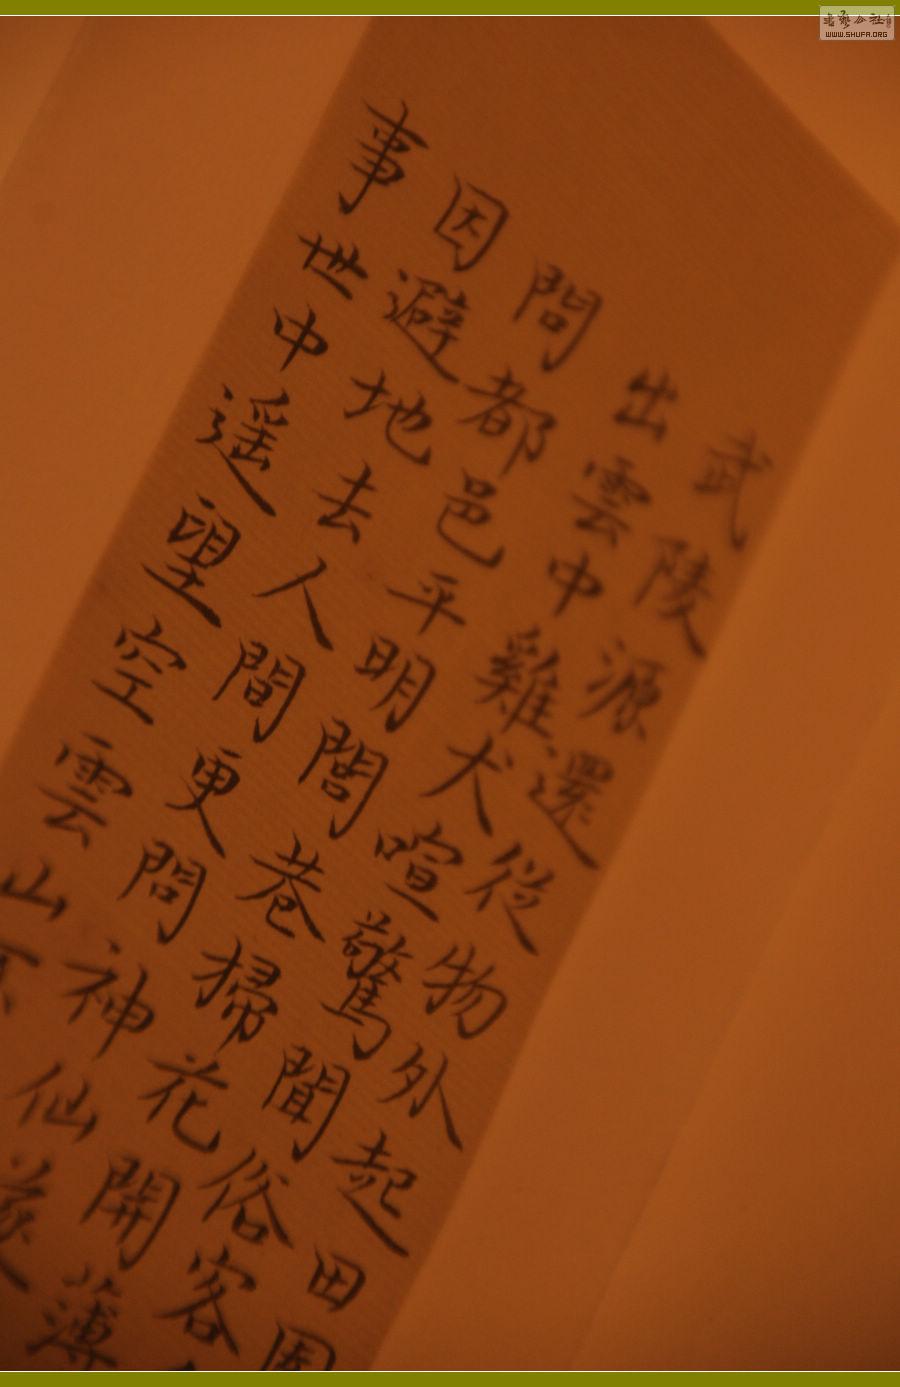 武陵源還從物外起田園
出雲中雞犬喧驚聞俗客
問都邑平明閭巷掃花開薄
因避地去人間更問神仙遂
事世中遥望空雲山不
書藝公社
WWW.SHUFA.ORG